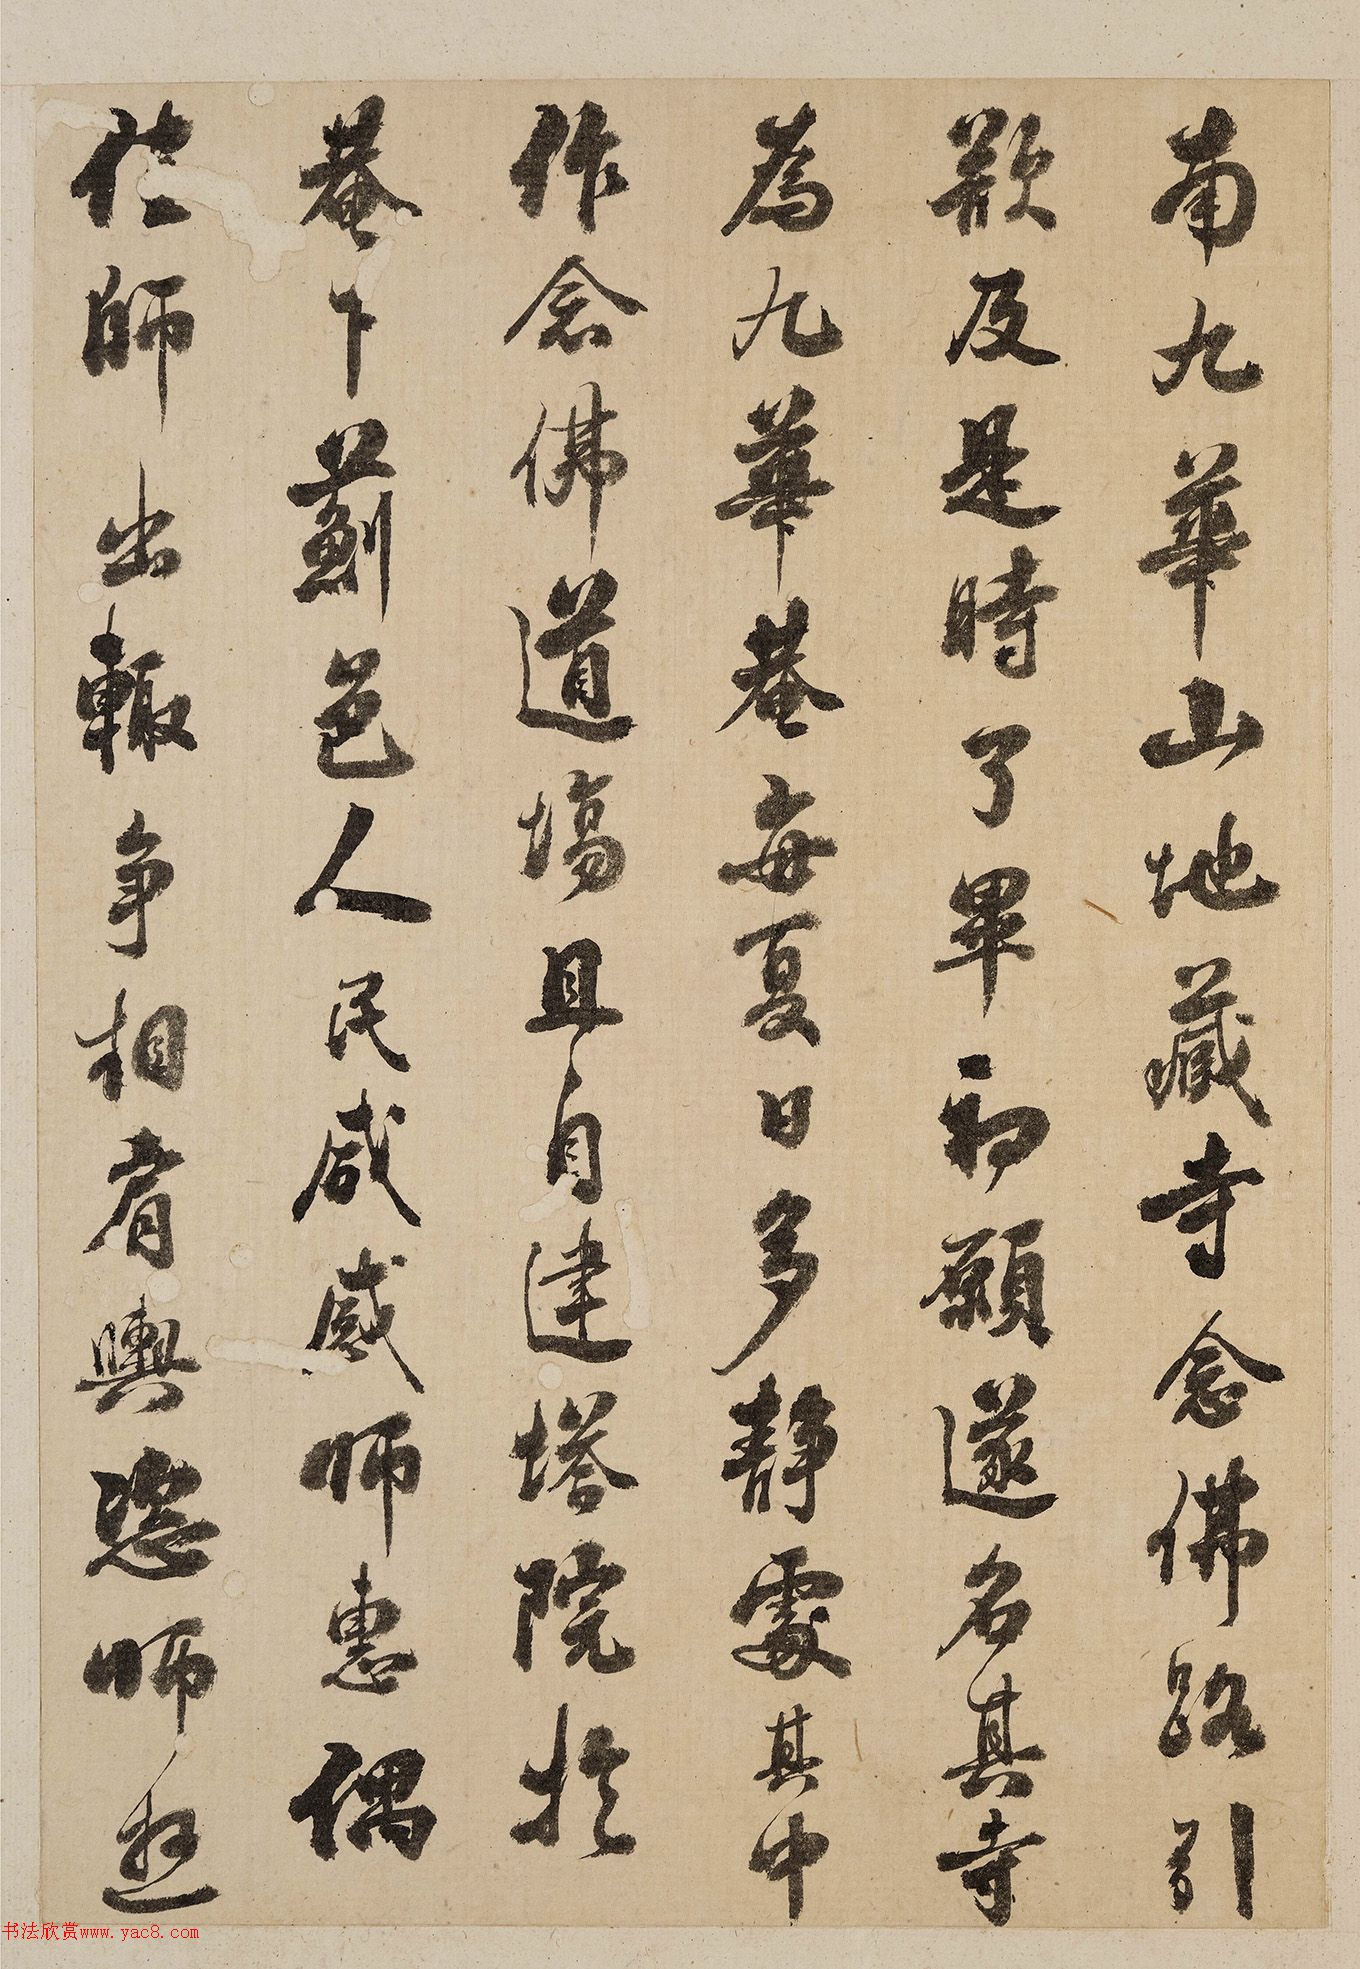 南九華山地藏寺念佛路引
歎及是時了畢初願遂名其寺
為九華菴每夏日多靜處其中
作念佛道場且自建塔院於
菴下薊邑人民咸感師惠偶
値師出輙爭相肩輿恣師遊
书法欣赏www.yac8.com